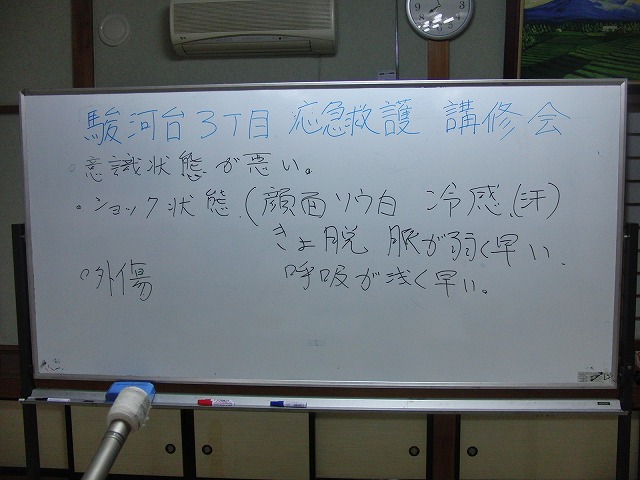 駿河台3丁目 応急救護 講修会
・意識状態が悪い。
・ショック状態、(顔面ソウ白 冷感、(汗)
きょ脱 脈が弱く早い、
・外傷 呼吸が浅く早い。